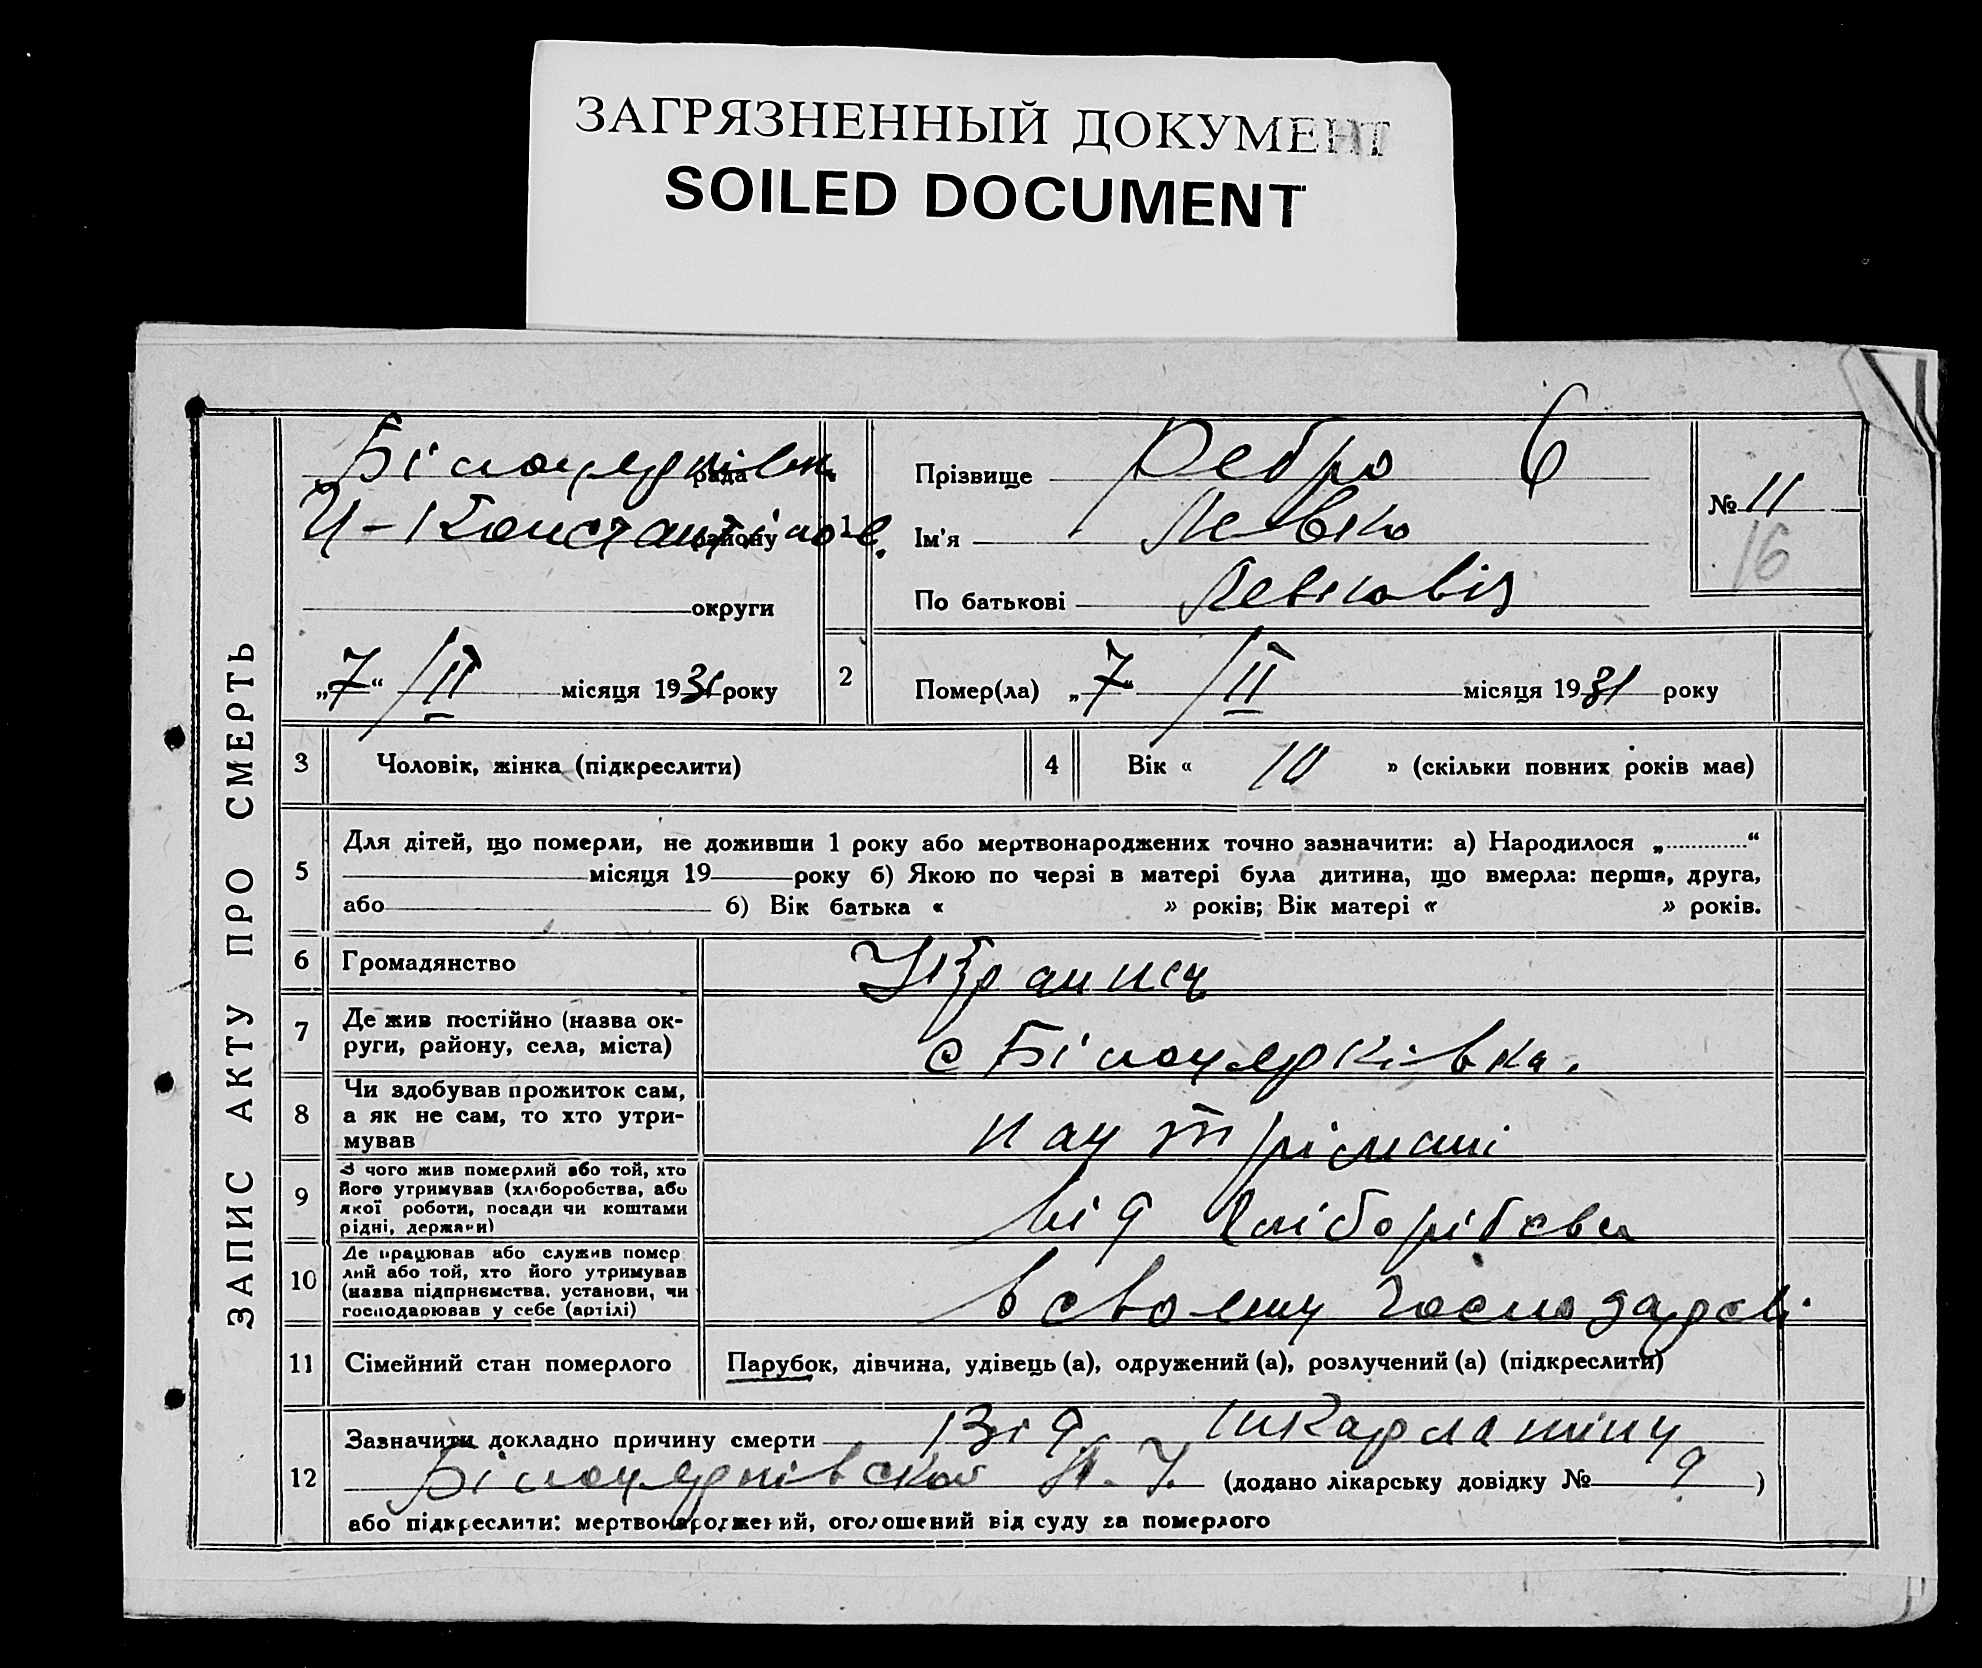 ЗАГРЯЗНЕННЫЙ ДОКУМЕНТ
SOILED DOCUMENT
ЗАПИС АКТУ ПРО СМЕРТЬ
Білоцерківськ. рада
району
округи
„7“ /II місяця 1931 року
1
Прізвище Ребро 6
Ім'я Левко
По батькові Левковіч
№ 11
16
2 Помер(ла) „7“ /II місяця 1931 року
3 Чоловік, жінка (підкреслити)
4 Вік « 10 » (скільки повних років має)
5 Для дітей, що померли, не доживши 1 року або мертвонароджених точно зазначити: а) Народилося „ “
місяця 19 року б) Якою по черзі в матері була дитина, що вмерла: перша, друга,
або б) Вік батька « » років; Вік матері « » років.
6 Громадянство Украинц
7 Де жив постійно (назва ок-
руги, району, села, міста)
с Білоцерківка.
8 Чи здобував прожиток сам,
а як не сам, то хто утри-
мував
на утрімані
9 З чого жив померлий або той, хто
його утримував (хліборобства, або
якої роботи, посади чи коштами
рідні, держави)
від хліборібсва
10 Де працював або служив помер
лий або той, хто його утримував
(назва підприємства, установи, чи
господарював у себе (артілі)
в своєму господарсві.
11 Сімейний стан померлого Парубок, дівчина, удівець (а), одружений (а), розлучений (а) (підкреслити)
12 Зазначити докладно причину смерти Від шкарлатіну
Білоцерківской (додано лікарську довідку № 9 )
або підкреслити: мертвонароджений, оголошений від суду за померлого